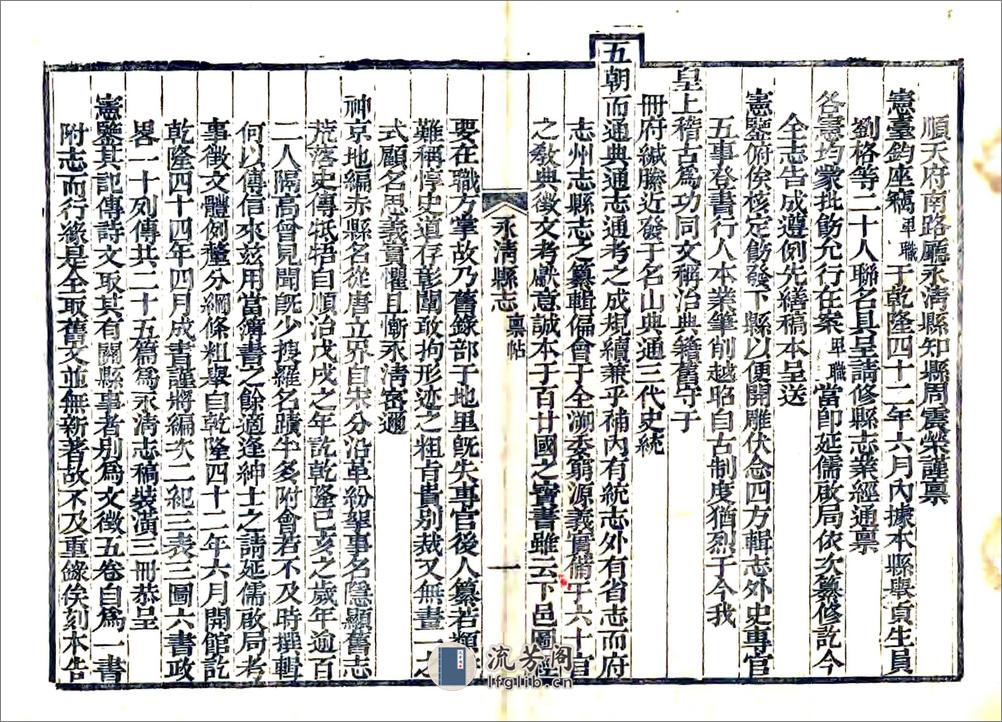 順天府南路廳永清縣知縣周震榮謹禀
憲臺鈞座竊卑職于乾隆四十二年六月內據本縣舉貢生員
劉格等二十人聯名具呈請修縣志業經通禀
各憲均蒙批飭允行在案卑職當卽延儒啟局依次纂修訖今
全志告成遵例先繕稿本呈送
憲鑒俯俟核定飭發下縣以便開雕伏念四方輯志外史專官
五事登書行人本業筆削越昭自古制度猶烈于今我
皇上稽古爲功同文稱治典籍舊守子
冊府緘縢近發于名山典通三代史統
五朝而通典通志通考之成規續兼乎補內有統志外有省志而府
志州志縣志之纂輯偏會于全溯委窮源義實備乎六十官
之敎典徵文考獻意誠本于百廿國之寶書雖云下邑圖
要在職方掌故乃舊錄部于地里旣失專官後人纂若類
難稱惇史道存彰闡敢拘形迹之粗占畢別裁又無畫一之
式顧名思義責懼且慚永清密邇
神京地編赤縣名從唐立界自宋分沿革紛挐事名隱顯舊志
荒落史傳牴牾自順治戊戌之年訖乾隆己亥之歲年逾百
二人隔高曾見聞旣少搜羅名蹟半多附會若不及時撰輯
何以傳信來兹用當簿書之餘適逢紳士之請延儒啟局考
事徵文體例釐分綱條粗舉自乾隆四十二年六月開館訖
乾隆四十四年四月成書謹將編次二紀三表三圖六書政
畧一十列傳共二十五篇爲永清志稿裝潢三冊恭呈
憲鑒其記傳詩文取其有關縣事者別爲文徵五卷自爲一書
附志而行緣是全取舊文並無新著故不及重錄俟刻本告
永清縣志
禀帖
一
流芳閣
lfglib.cn